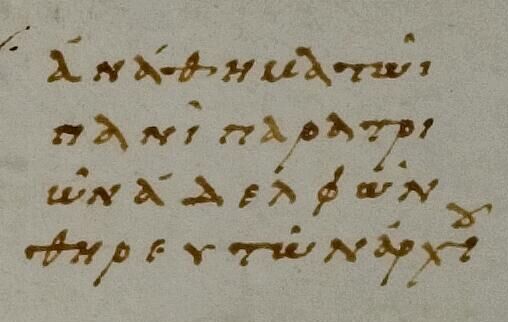 ἀνάθημα τῶι
πανὶ παρὰ τρι
ῶν ἀδελφῶν
θηρευτῶν ἀρχίου